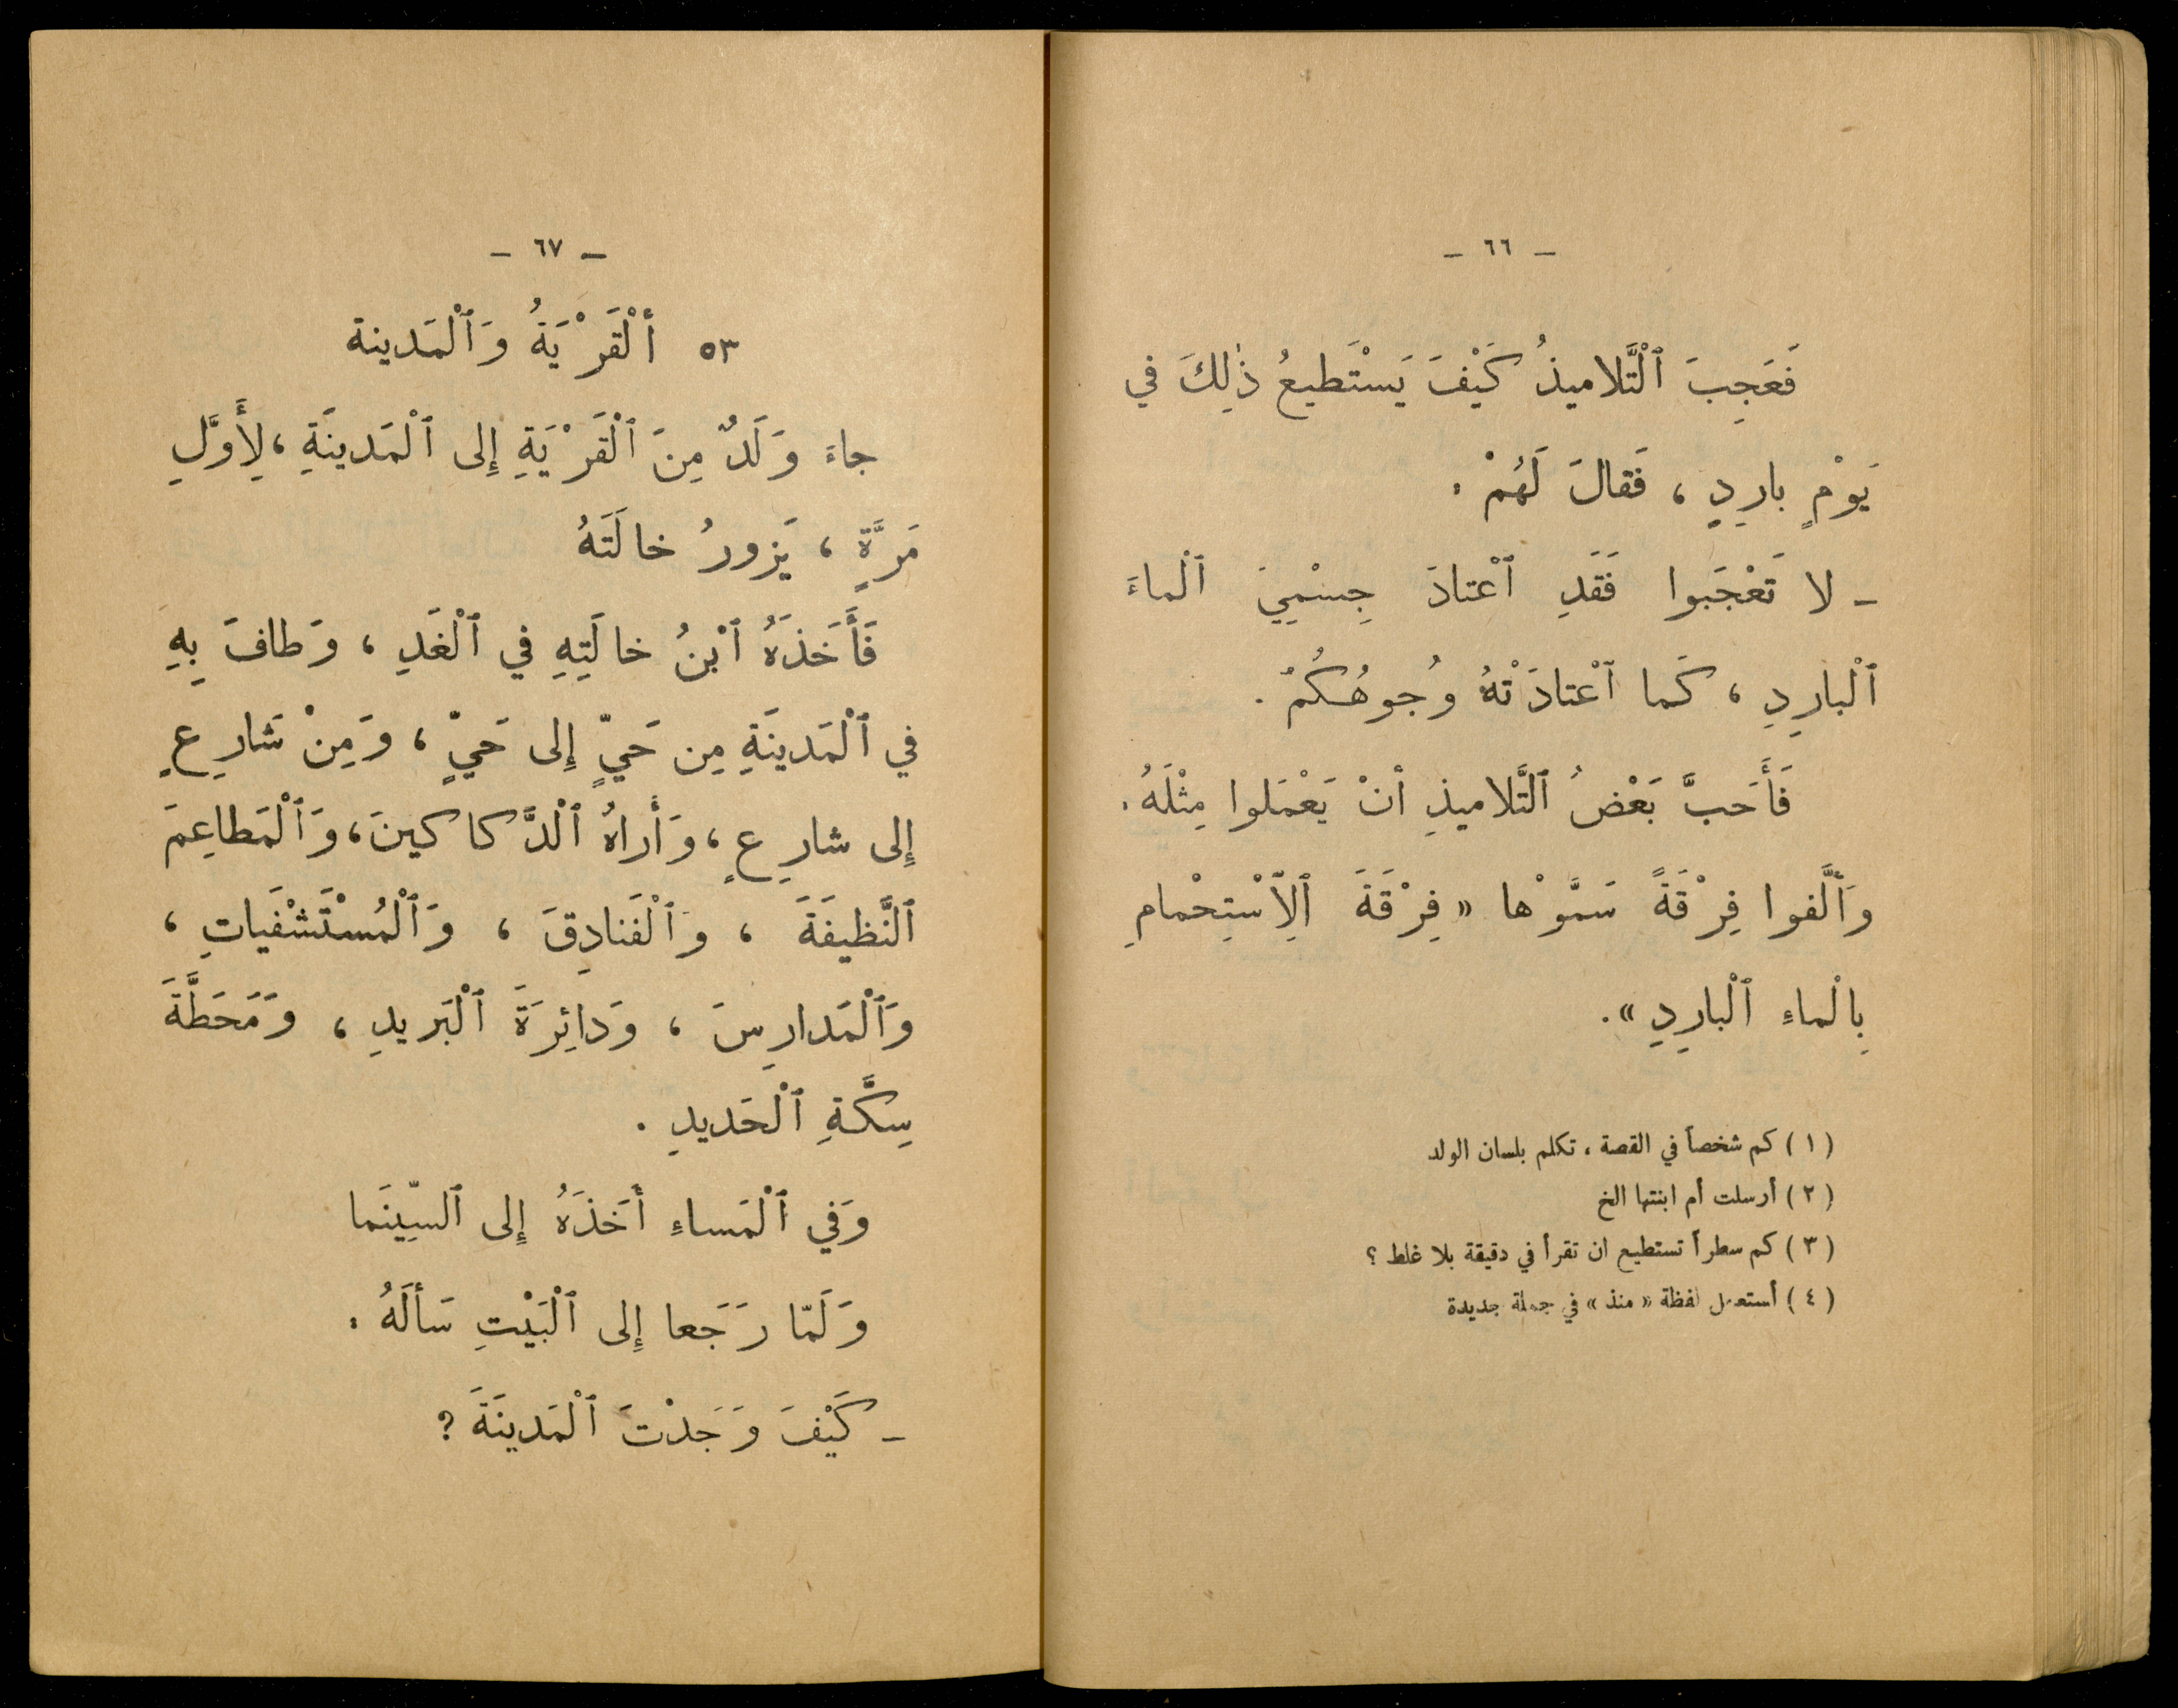 – ٦٦ –
فَعَجِبَ ٱلْتَّلاميذُ كَيْفَ يَسْتَطيعُ ذٰلِكَ في
يَوْمٍ بارِدٍ ، فَقالَ لَهُمْ .
– لا تَعْجَبوا فَقَدِ ٱعْتادَ جِسْمِيَ ٱلْماءَ
ٱلْبارِدِ ، كَما ٱعْتادَتْهُ وُجوهُكُمْ .
فَأَحَبَّ بَعْضُ ٱلتَّلاميذِ أنْ يَعْمَلوا مِثْلَهُ .
وَأَلَّفوا فِرْقَةً سَمَّوْها « فِرْقَةَ ٱلِاسْتِحْمامِ
بِالْماءِ ٱلْبارِدِ » .
( ١ ) كم شخصاً في القصة ، تكلم بلسان الولد
( ٢ ) أرسلت أم ابنتها الخ
( ٣ ) كم سطراً تستطيع ان تقرأ في دقيقة بلا غلط ؟
( ٤ ) أستعمل لفظة « منذ » في جملة جديدة
– ٦٧ –
٥٣ أَلْقَرْيَةُ وَٱلْمَدينة
جاءَ وَلَدٌ مِنَ ٱلْقَرْيَةِ إِلى ٱلْمَدينَةِ ، لِأَوَّلِ
مَرَّةٍ ، يَزورُ خالَتَهُ
فَأَخَذَهُ ٱبْنُ خالَتِهِ في ٱلْغَدِ ، وَطافَ بِهِ
في ٱلْمَدينَةِ مِن حَيٍّ إِلى حَيٍّ ، وَمِنْ شارِعٍ
إِلى شارِعٍ ، وَأَراهُ ٱلْدَّكاكينَ ، وَٱلْمَطاعِمَ
ٱلنَّظيفَةَ ، وَٱلْفَنادِقَ ، وَٱلْمُسْتَشْفَياتِ ،
وَٱلْمَدارِسَ ، وَدائِرَةَ ٱلْبَريدِ ، وَمَحَطَّةَ
سِكَّةِ ٱلْحَديدِ .
وَفي ٱلْمَساءِ أَخَذَهُ إِلى ٱلسِّينَما
وَلَمّا رَجَعا إِلى ٱلْبَيْتِ سَأَلَهُ .
– كَيْفَ وَجَدْتَ ٱلْمَدينَةَ ؟